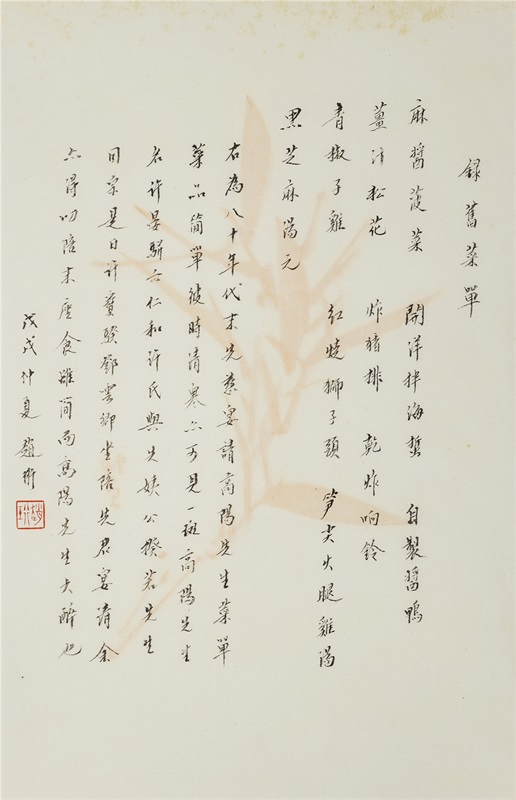 錄舊菜單
麻醬菠菜 開洋拌海蜇 自製醬鴨
薑汁松花 炸豬排 乾炸响鈴
青椒子雞 紅燒獅子頭 笋尖火腿雞湯
黑芝麻湯元
右為八十年代末先慈宴請高陽先生菜單
菜品簡單彼時清寒亦可見一斑高陽先生
名許晏駢亦仁和許氏與先姨公揆若先生
同宗是日許寶騤鄧雲鄉坐陪先君宴請余
亦得叨陪末座食雖簡而高陽先生大醉也
戊戌仲夏趙珩
趙珩